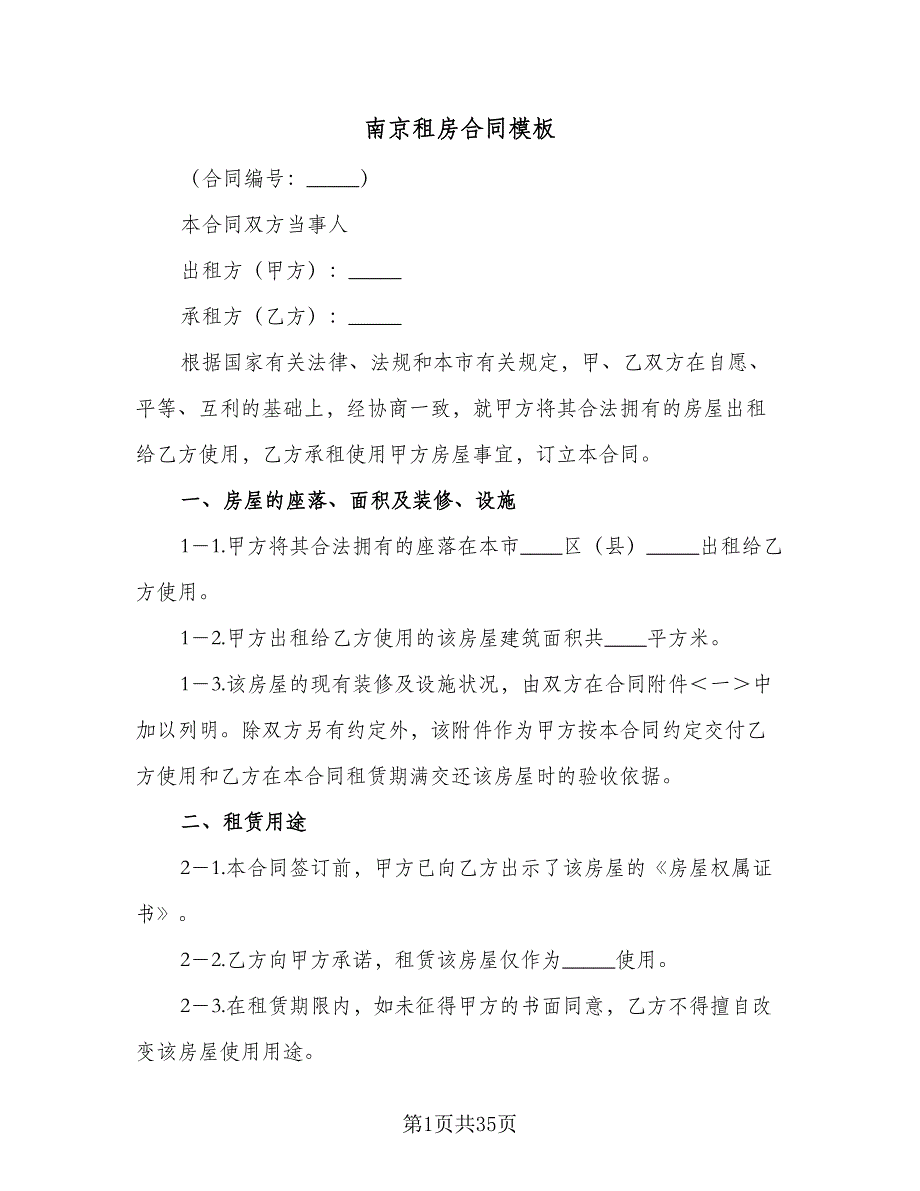 南京租房合同模板
（合同编号：_____）
本合同双方当事人
出租方（甲方）：_____
承租方（乙方）：_____
根据国家有关法律、法规和本市有关规定，甲、乙双方在自愿、
平等、互利的基础上，经协商一致，就甲方将其合法拥有的房屋出租
给乙方使用，乙方承租使用甲方房屋事宜，订立本合同。
一、房屋的座落、面积及装修、设施
1－1.甲方将其合法拥有的座落在本市____区（县）_____出租给乙
方使用。
1－2.甲方出租给乙方使用的该房屋建筑面积共____平方米。
1－3.该房屋的现有装修及设施状况，由双方在合同附件＜一＞中
加以列明。除双方另有约定外，该附件作为甲方按本合同约定交付乙
方使用和乙方在本合同租赁期满交还该房屋时的验收依据。
二、租赁用途
2－1.本合同签订前，甲方已向乙方出示了该房屋的《房屋权属证
书》。
2－2.乙方向甲方承诺，租赁该房屋仅作为_____使用。
2－3.在租赁期限内，如未征得甲方的书面同意，乙方不得擅自改
变该房屋使用用途。
第1页共35页